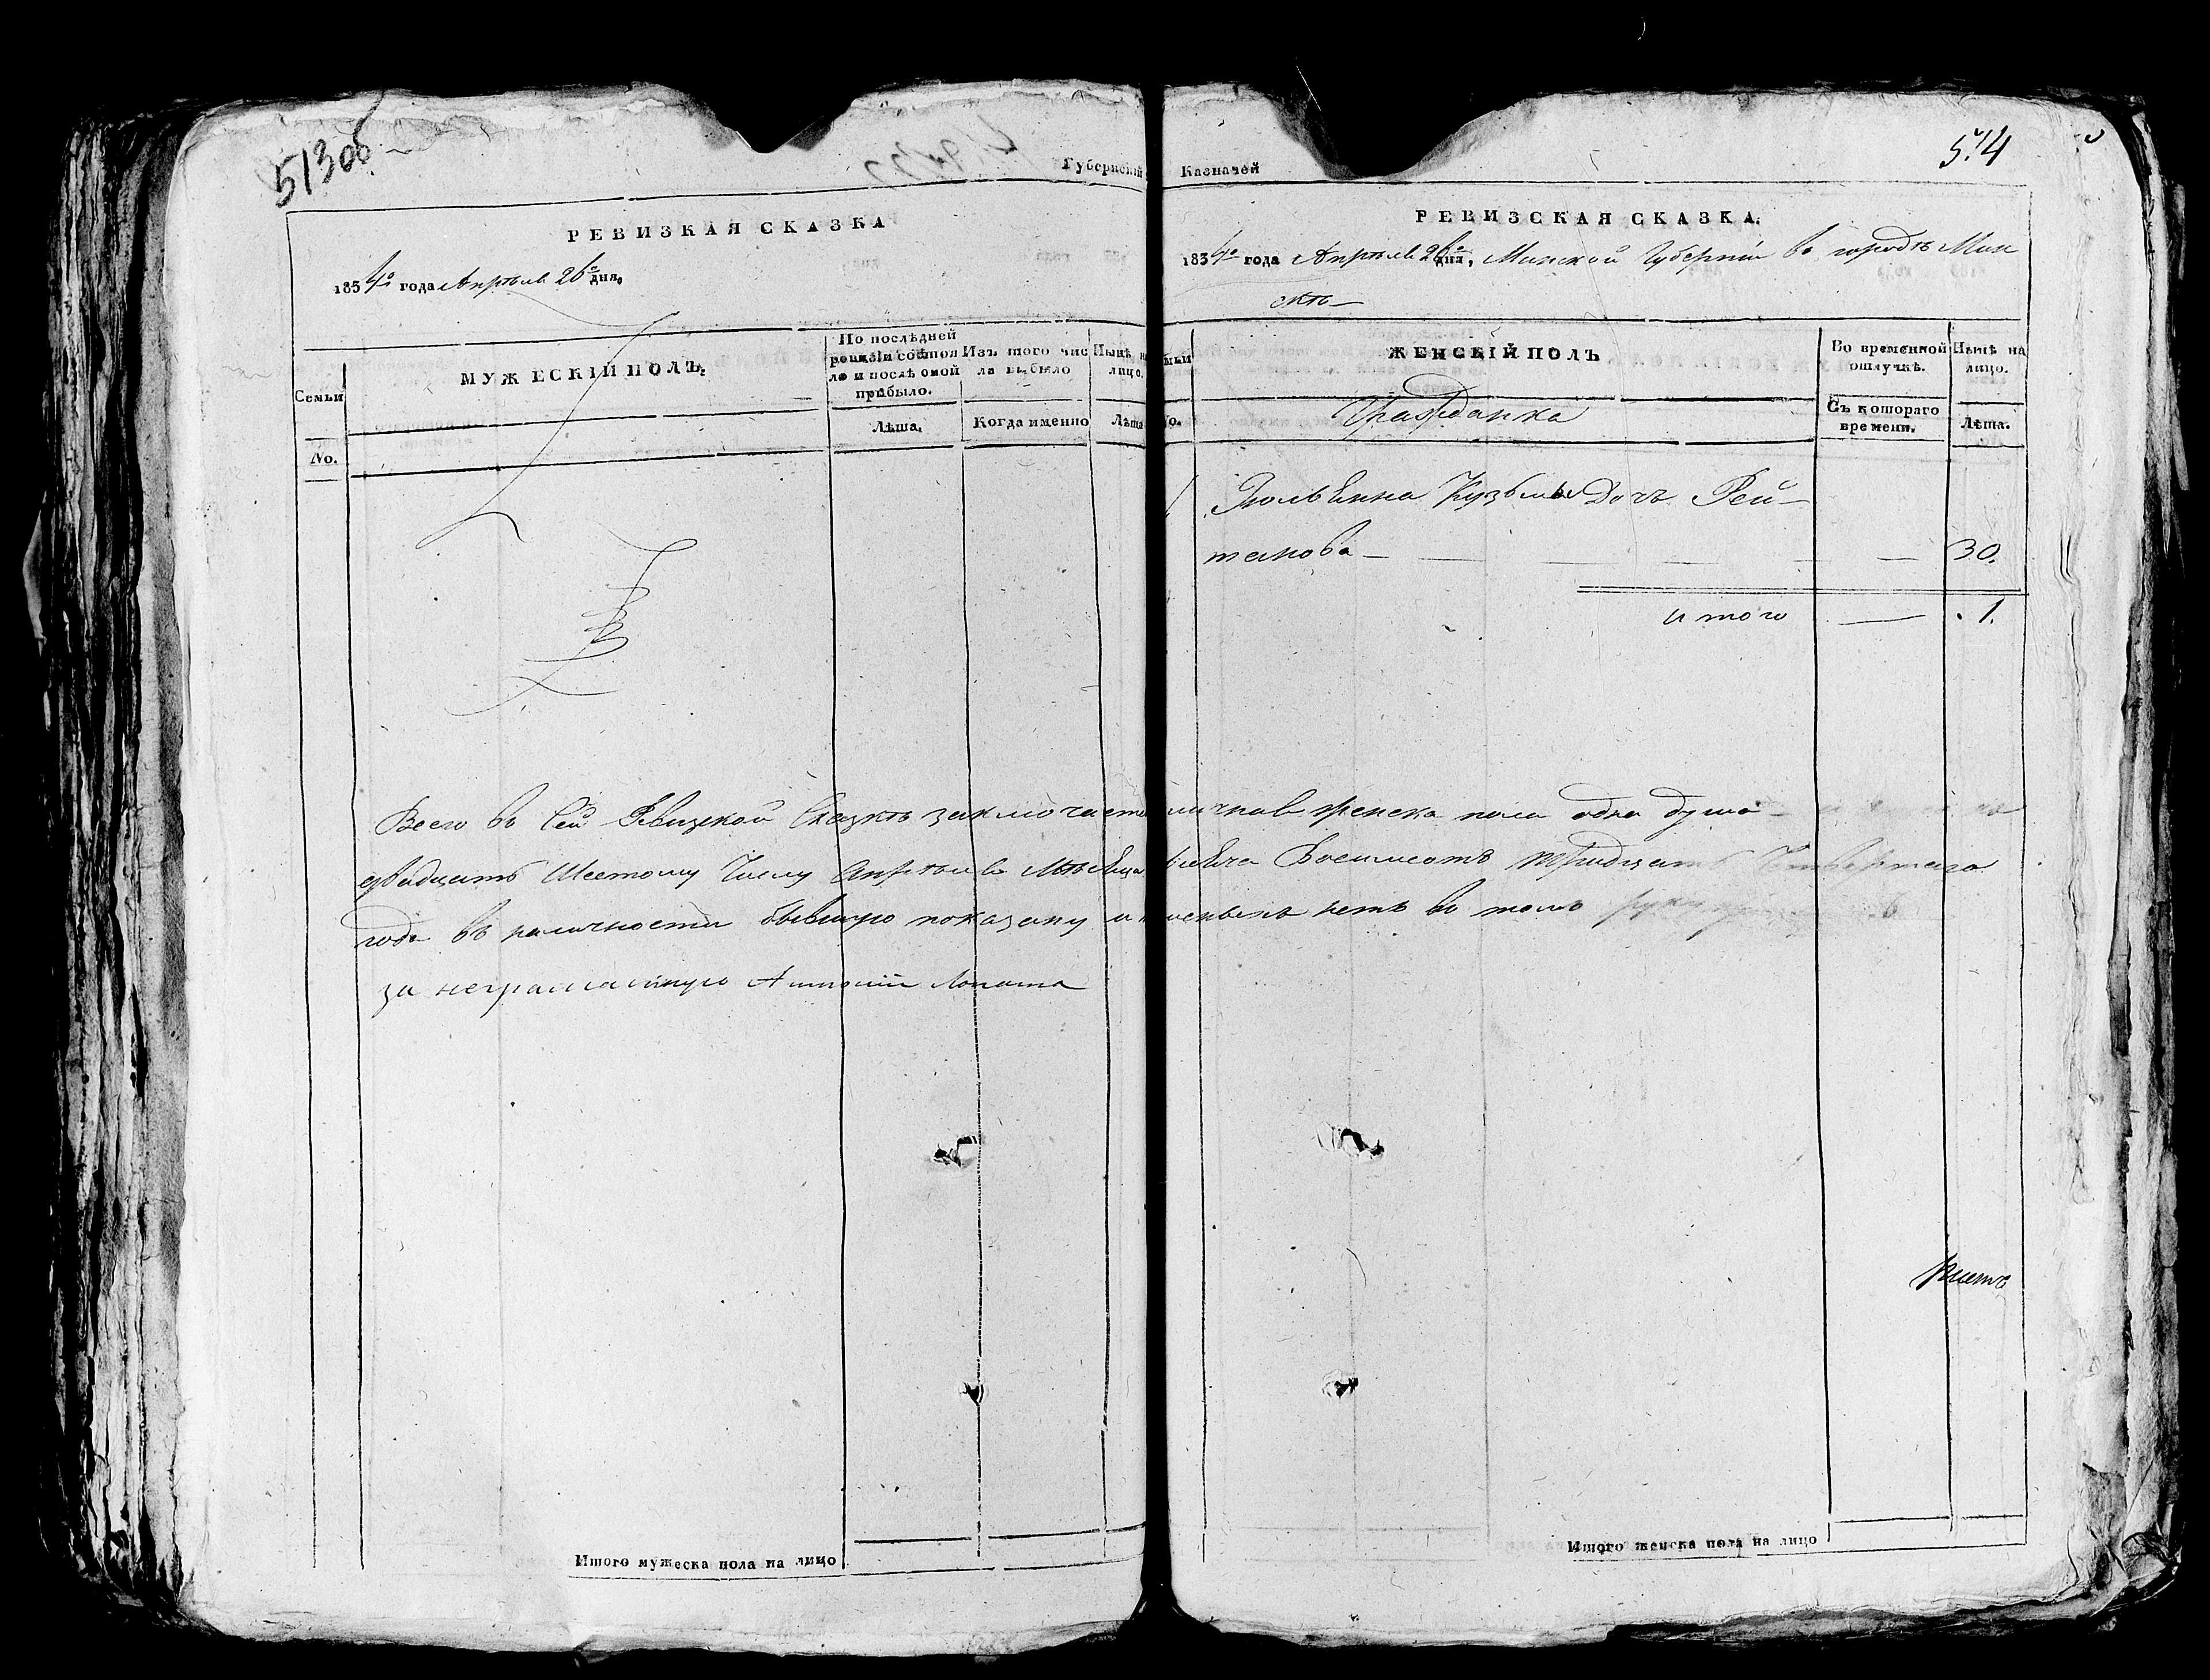 513об
Губернскій
РЕВИЗКАЯ СКАЗКА
1834го года Апрѣля 26го дня.
Семьи
No.
МУЖЕСКІЙ ПОЛЪ.
По послѣдней
ревизіи состоя
ло и послѣ оной
прибыло.
Лѣта.
Изъ того чис
ла выбыло
Когда именно
Нынѣ на
лицо.
Лѣта
Казначей
514
РЕВИЗСКАЯ СКАЗКА.
1834го года Апрѣля 26го дня, Минской Губерніи въ городѣ Мин
скѣ
мьи
No.
ЖЕНСКІЙ ПОЛЪ
Гражданка
Во временной
отлучкѣ.
Съ котораго
времени.
Нынѣ на
лицо.
Лѣта.
1 Кузьмы Дочь Рей-
танова — — 30.
итого — 1.
Всего въ сей Ревизкой Сказкѣ заключается женска пола одна душа
двадцать Шестому Числу Апрѣля Мѣсяца тысяча восемсотъ тридцать Четвертаго
года въ наличности бывшую показану и нетъ въ томъ
за неграматную Антоній Лопата
Итого мужеска пола на лицо
Итого женска пола на лицо